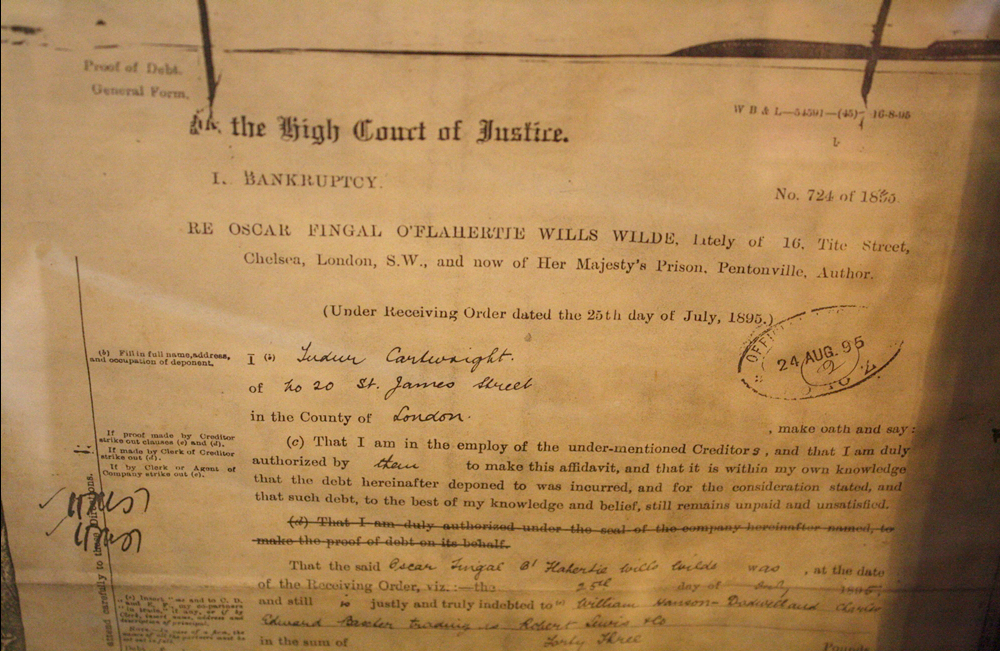 Proof of Debt.
General Form.
W B & L—54591—(45)— 16-8-95
In the High Court of Justice.
I. BANKRUPTCY.
No. 724 of 1895
RE OSCAR FINGAL O'FLAHERTIE WILLS WILDE, lately of 16, Tite Street,
Chelsea, London, S.W., and now of Her Majesty's Prison, Pentonville, Author.
(Under Receiving Order dated the 25th day of July, 1895.)
24 AUG. 95
2
(b) Fill in full name, address,
and occupation of deponent.
I (b) Cartwright.
of No 20 St. James Street
in the County of London.
, make oath and say:
If proof made by Creditor
strike out clauses (c) and (d).
If made by Clerk of Creditor
strike out (d).
If by Clerk or Agent of
Company strike out (c).
(c) That I am in the employ of the under-mentioned Creditors, and that I am duly
authorized by them to make this affidavit, and that it is within my own knowledge
that the debt hereinafter deponed to was incurred, and for the consideration stated, and
that such debt, to the best of my knowledge and belief, still remains unpaid and unsatisfied.
(d) That I am duly authorized under the seal of the company hereinafter named, to
make the proof of debt on its behalf.
That the said Oscar Fingal O'Flahertie Wills Wilde was, at the date
of the Receiving Order, viz:—the 25th day of July 1895,
and still is justly and truly indebted to William Hanson Dodwell and Charles
Edward Baxter trading as Robert Lewis & Co
in the sum of Forty Three Pounds
attend carefully to these Directions.